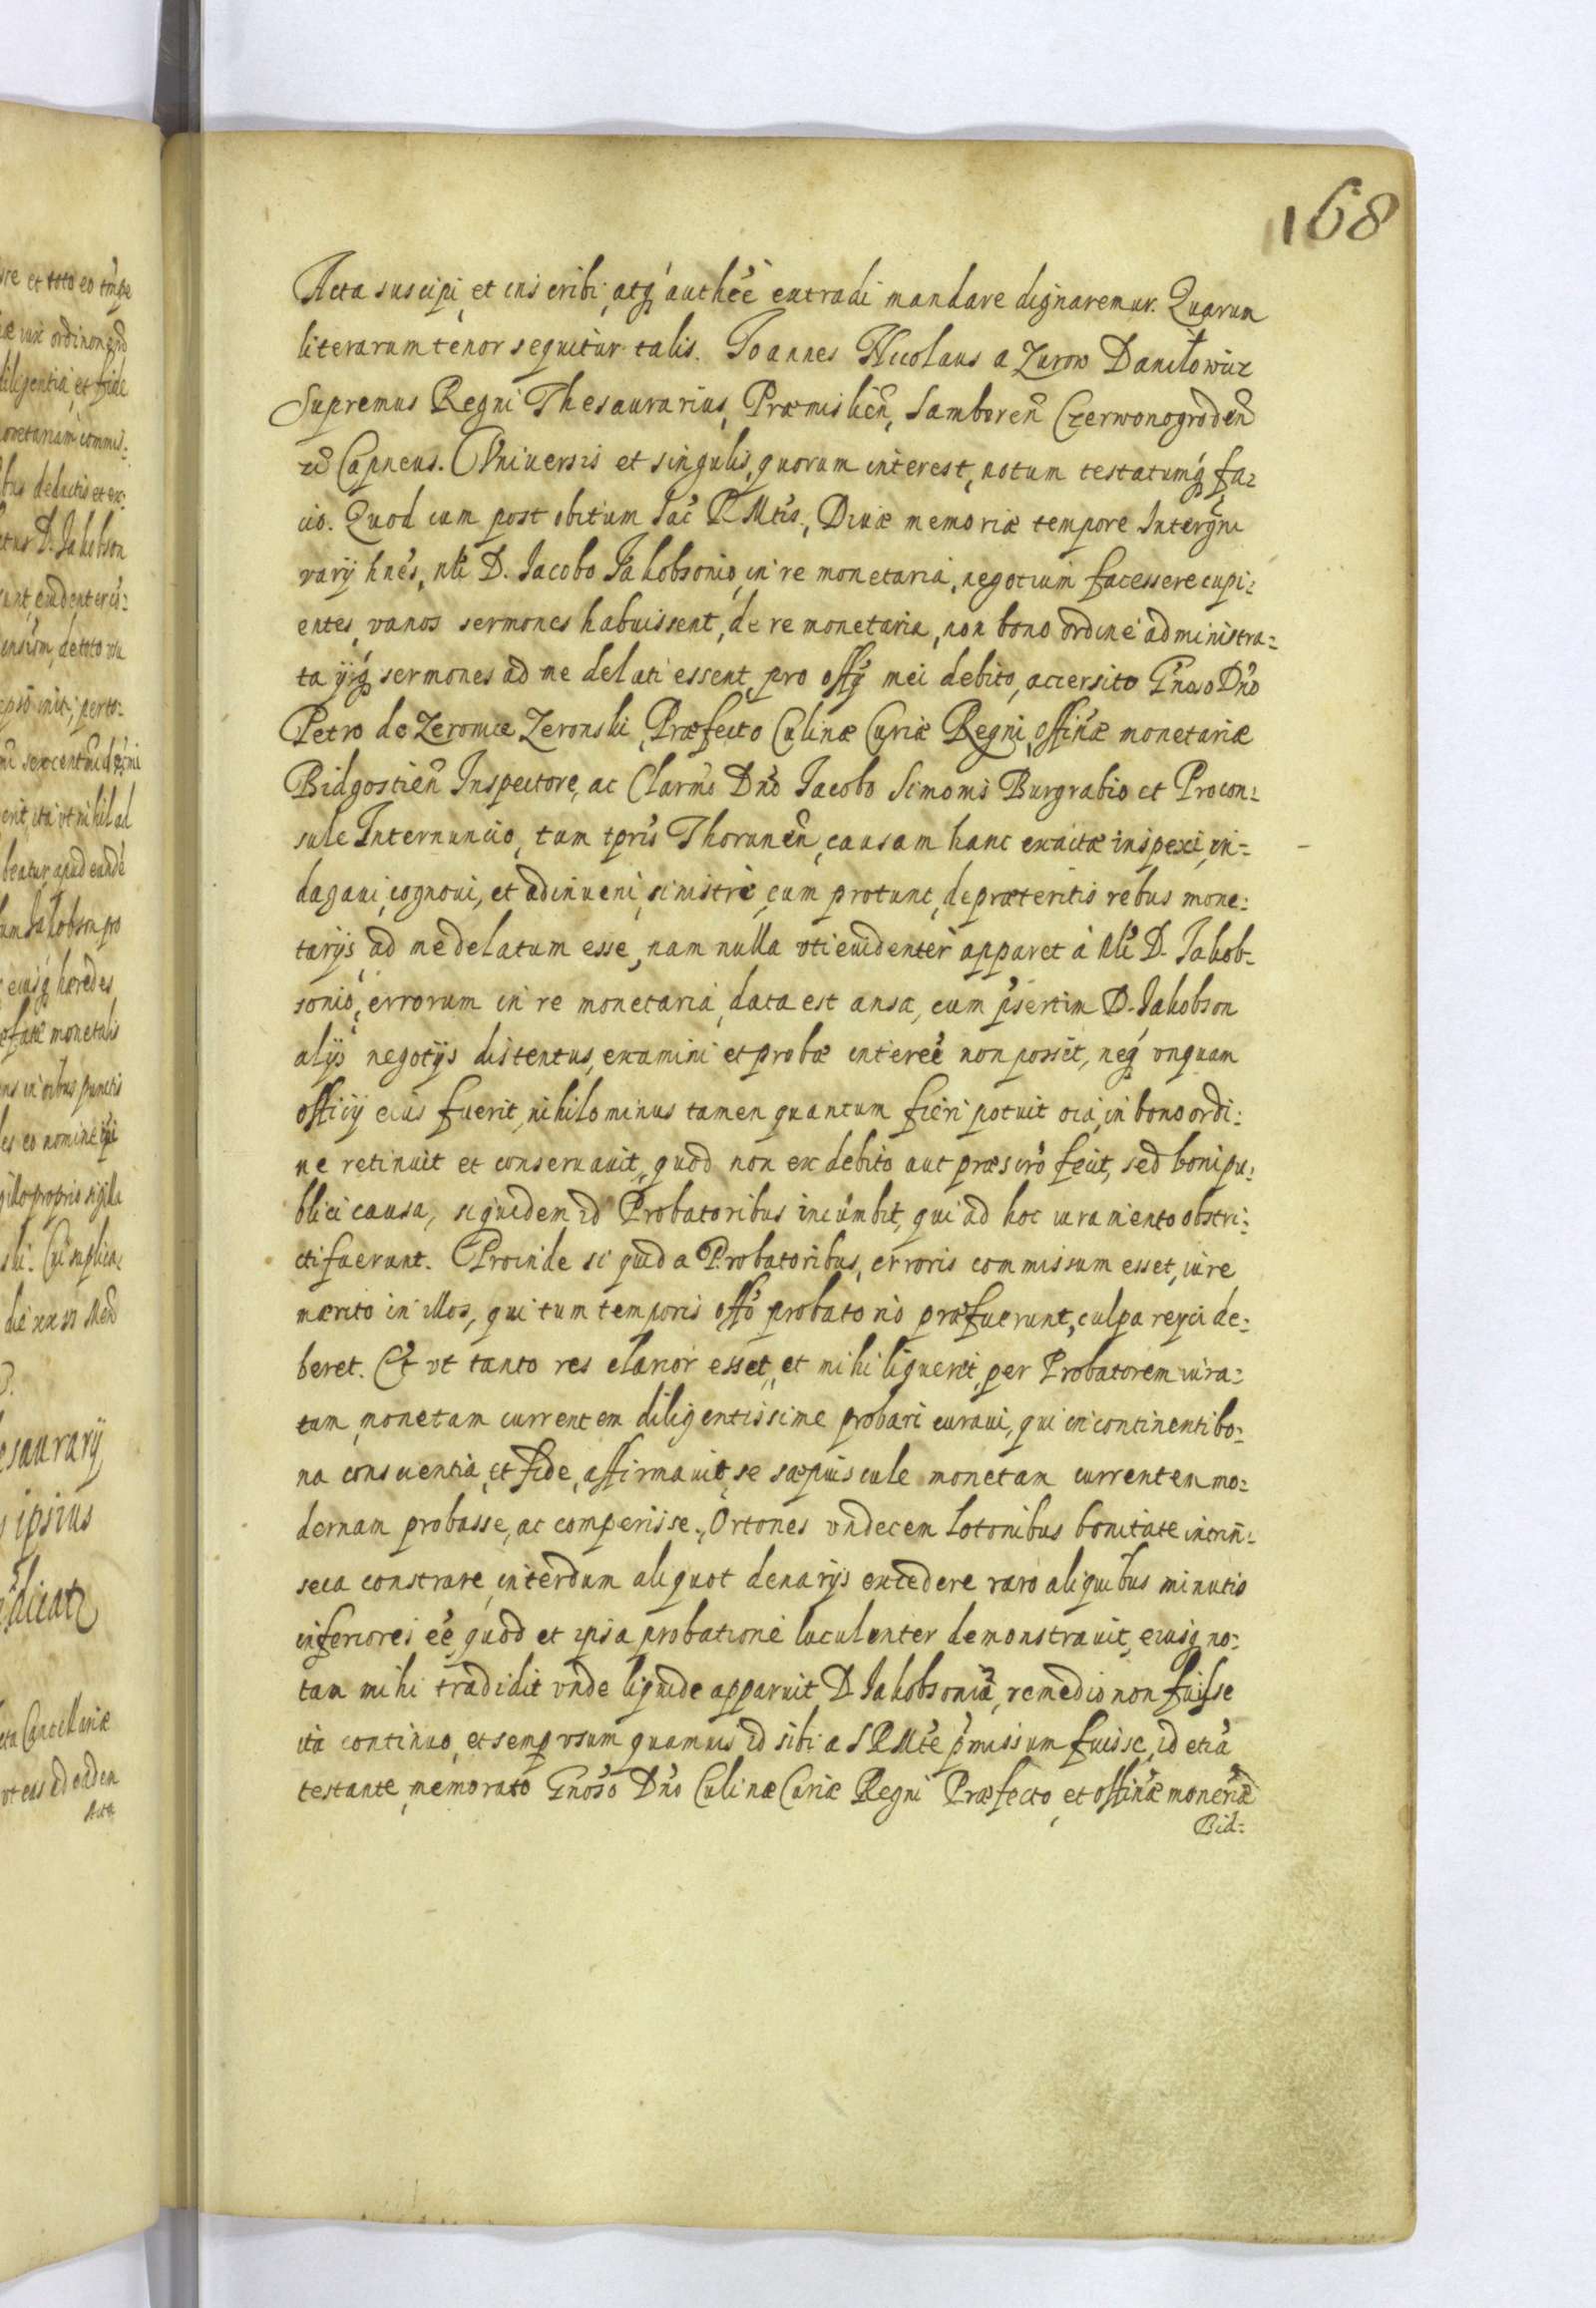 168
Acta suscipi, et inscribi, atq́ authēē extradi mandare dignaremur. Quarum
literarum tenor sequitur talis. Joannes Nicolaus a Zurow Daniłowicz
Supremus Regni Thesaurarius, Præmislień, Samboreń Czerwonogrodeń
zc Capneus. Vniuersis et singulis, quorum interest, notum testatumq́ fa=
cio. Quod cum post obitum Sac̃ R. Mtis, Diuæ memoriæ tempore Interg̃ni
varij hñes, Nli D. Jacobo Jakobsonio, in re monetaria, negotium facessere cupi=
entes, vanos sermones habuissent, de re monetaria, non bono ordine administra=
ta ijq́ sermones ad me delati essent, pro offỹ mei debito, accersito Gñoso Dño
Petro de Zeronice Zeronski, Præfecto Culinæ Curiæ Regni, Offiñæ monetariæ
Bidgostień Inspectore, ac Clarm̃o Dño Jacobo Simonis Burgrabio et Procon=
sule Internuncio, tum tpris Thoruneń, causam hanc exacte inspexi, in=
dagaui, cognoui, et adinueni, sinistre, cum protunc, de præteritis rebus mone=
tarijs, ad me delatum esse, nam nulla vti euidenter apparet à Nli D. Jakob=
sonio, errorum in re monetaria, data est ansa, cum p̃sertim D. Jakobson
alijs negotijs distentus, examini et probæ intereẽ non posset, neq́ vnquam
officij eius fuerit, nihilominus tamen quantum fieri potuit oĩa, in bono ordi=
ne retinuit et conseruauit, quod non ex debito aut præscr̃o fecit, sed boni pu=
blici causa, siquidem id Probatoribus incumbit, qui ad hoc iuramento obstri=
cti fuerunt. Proinde si quid a Probatoribus, erroris commissum esset, iure
merito in illos, qui tum temporis off̃o probatorio præfuerunt, culpa reijci de=
beret. Et vt tanto res clarior esset, et mihi liquerit, per Probatorem iura=
tum, monetam currentem diligentissime probari curaui, qui in continenti bo=
na conscientia, et fide, affirmauit, se sæpiuscule monetam currentem mo=
dernam probasse, ac comperisse, Ortones vndecem lotonibus bonitate intrin̄=
seca constrare, interdum aliquot denarijs excedere raro aliquibus minutis
inferiores eẽ, quod et ipsa probatione luculenter demonstrauit, eiusq́ no=
tam mihi tradidit vnde liquide apparuit D. Jakobsoniũ, remedio non fuisse
ita continuo, et semp̃ vsum quamuis id sibi a S R Mte p̃missum fuisse, id etiã
testante, memorato Gñoso Dño Culinæ Curiæ Regni Præfecto, et offiñæ moneriæ
Bid=